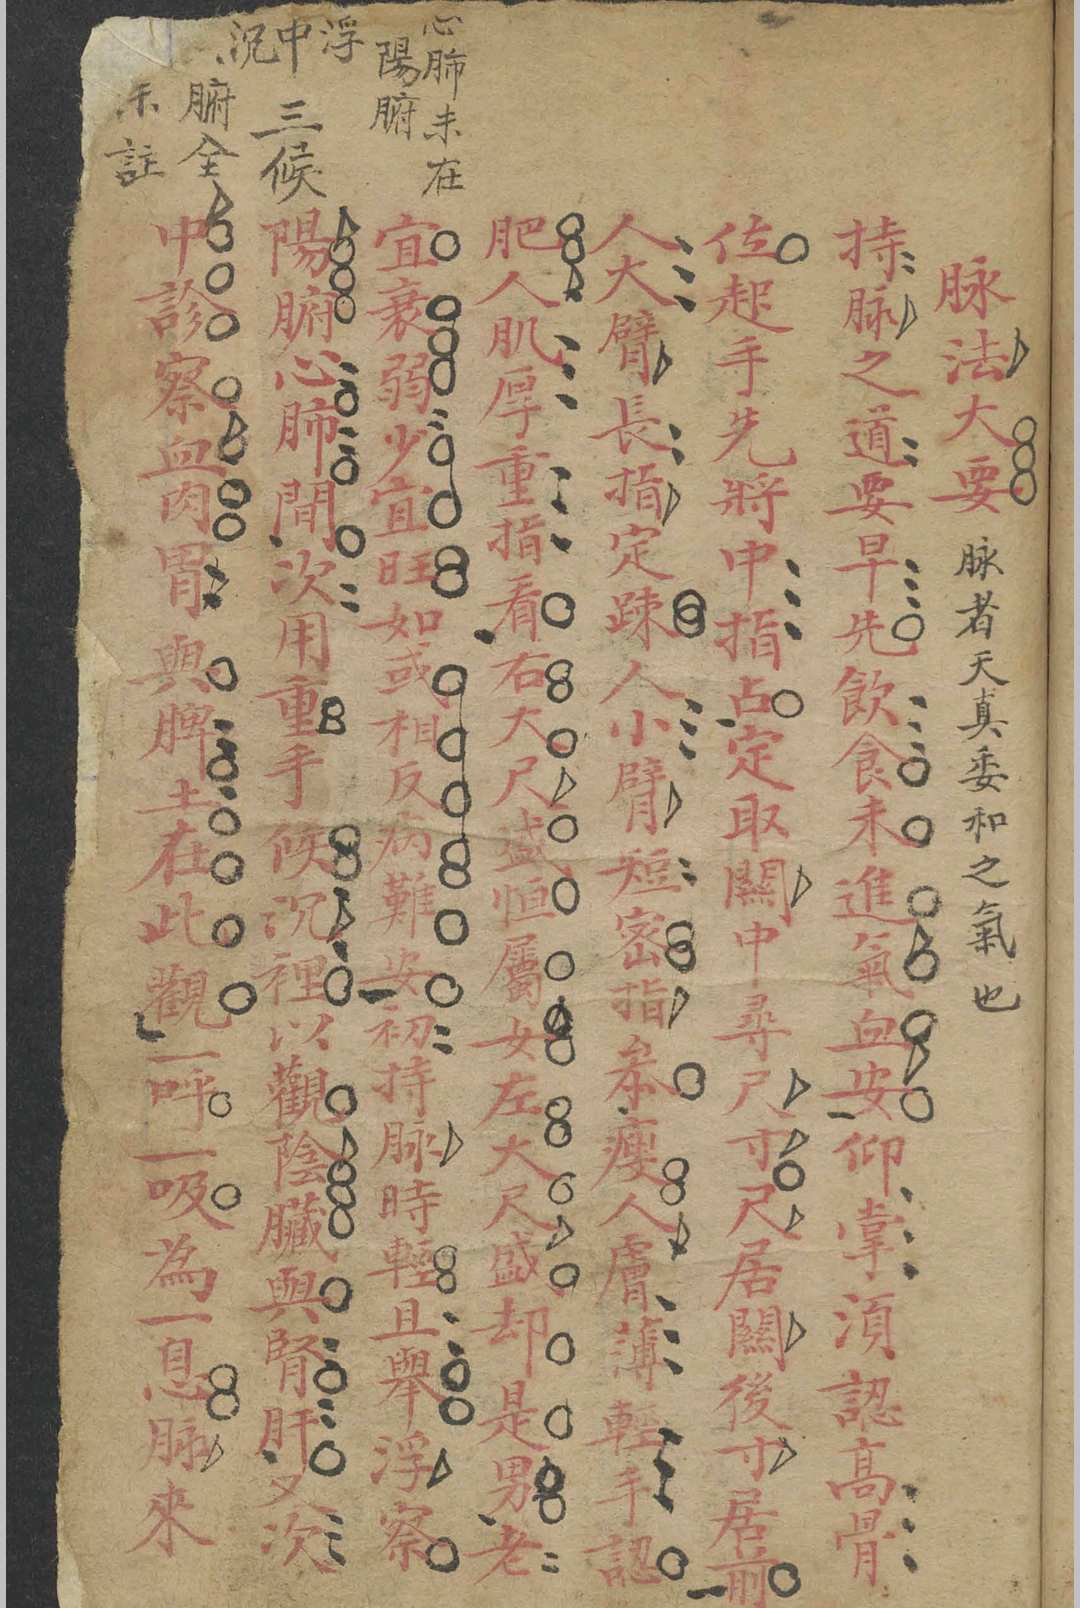 脉法大要 脉者天真委和之氣也
持脉之道要早先飲食未進氣血安仰掌須認高骨
位起手先將中指占定取關中尋尺寸尺居關後寸居前
人大臂長指定踈人小臂短密指叅瘦人膚薄輕手認
肥人肌厚重指看右大尺盛恒屬女左大尺盛却是男老
宜衰弱少宜旺如或相反病難安初持脉時輕且舉浮察
陽腑心肺間次用重手候沉裡以觀陰臟與腎肝又次
中診察血肉胃與脾土在此觀一呼一吸為一息脉來
心肺未在
陽腑
浮中沉
三候
腑全
未註